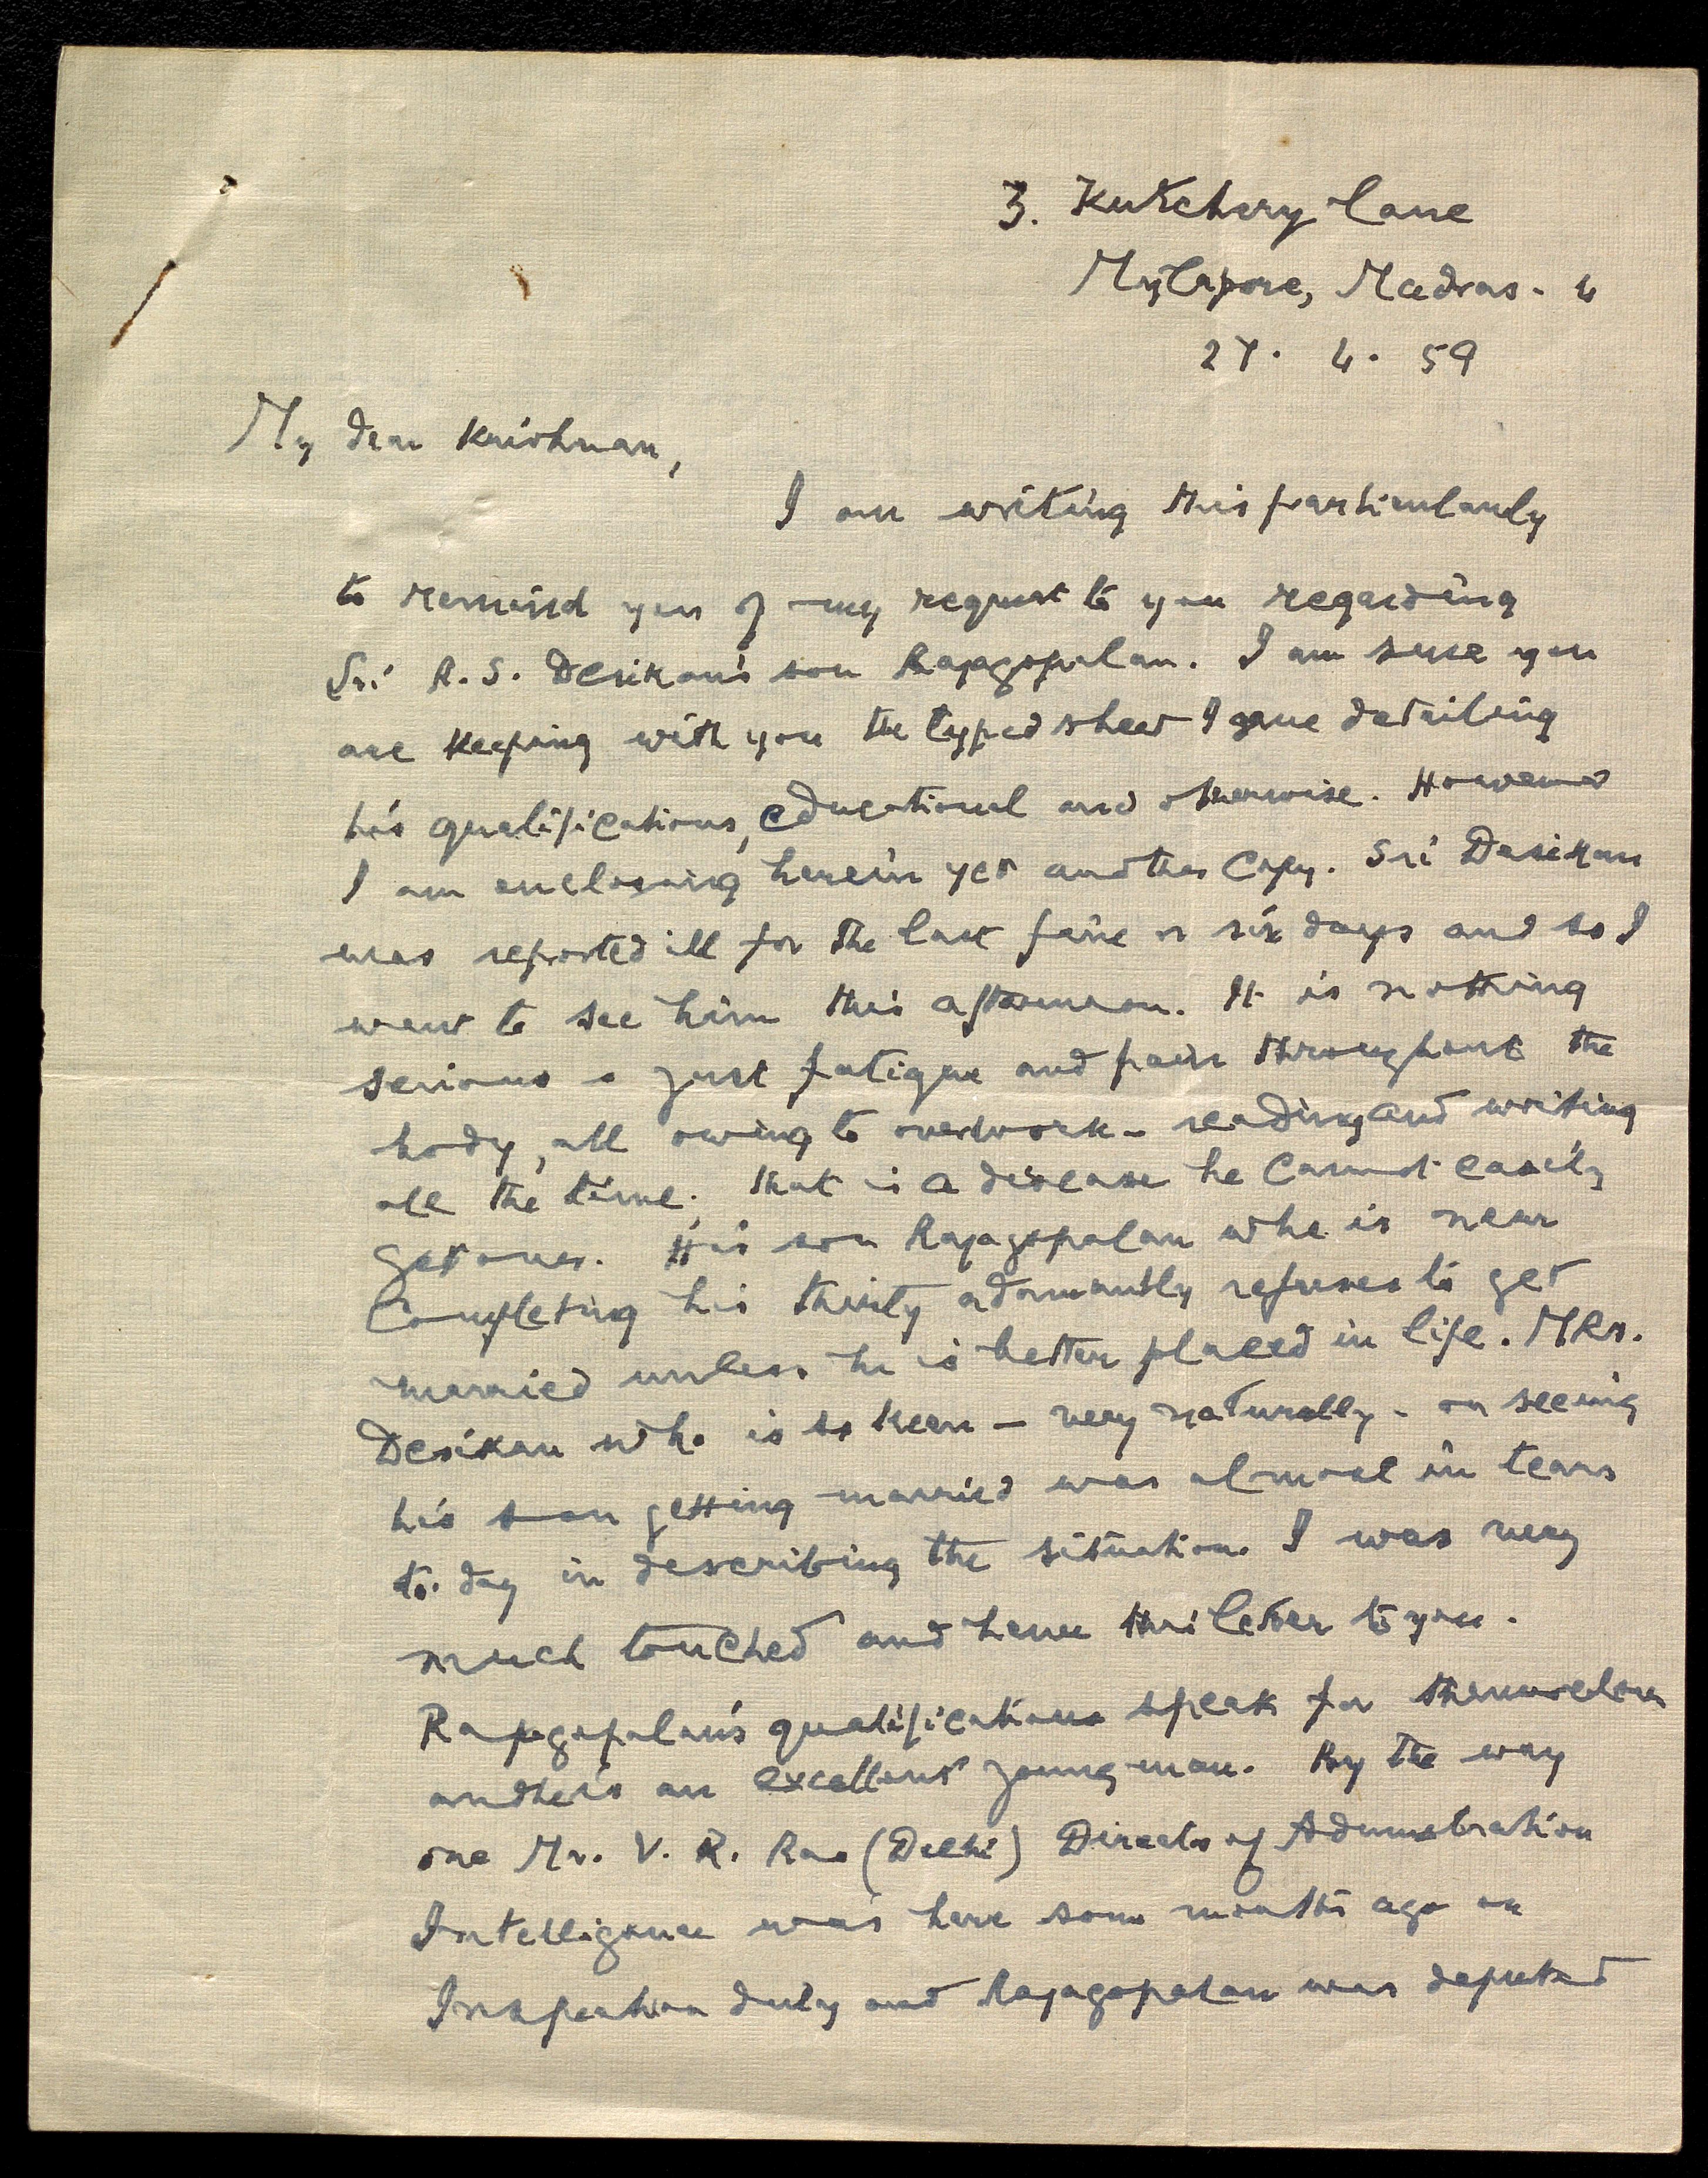 3. Kutchery Lane
Mylapore, Madras. 4
27. 4. 59
My dear Krishnan,
I am writing this particularly
to remind you of my request to you regarding
Sri R. S. Desikan's son Rajagopalan. I am sure you
are keeping with you the typed sheet I gave detailing
his qualifications, educational and otherwise. However
I am enclosing herein yet another copy. Sri Desikan
was reported ill for the last five or six days and so I
went to see him this afternoon. It is nothing
serious - just fatigue and pain throughout the
body, all owing to overwork - reading and writing
all the time. That is a disease he cannot easily
get over. His son Rajagopalan who is near
completing his thirty adamantly refuses to get
married unless he is better placed in life. Mrs.
Desikan who is so keen - very naturally - on seeing
his son getting married was almost in tears
to-day in describing the situation. I was very
much touched and hence this letter to you.
Rajagopalan's qualifications speak for themselves
and he is an excellent young man. By the way
one Mr. V. R. Rao (Delhi) Director of Administration
Intelligence was here some months ago on
Inspection duty and Rajagopalan was deputed